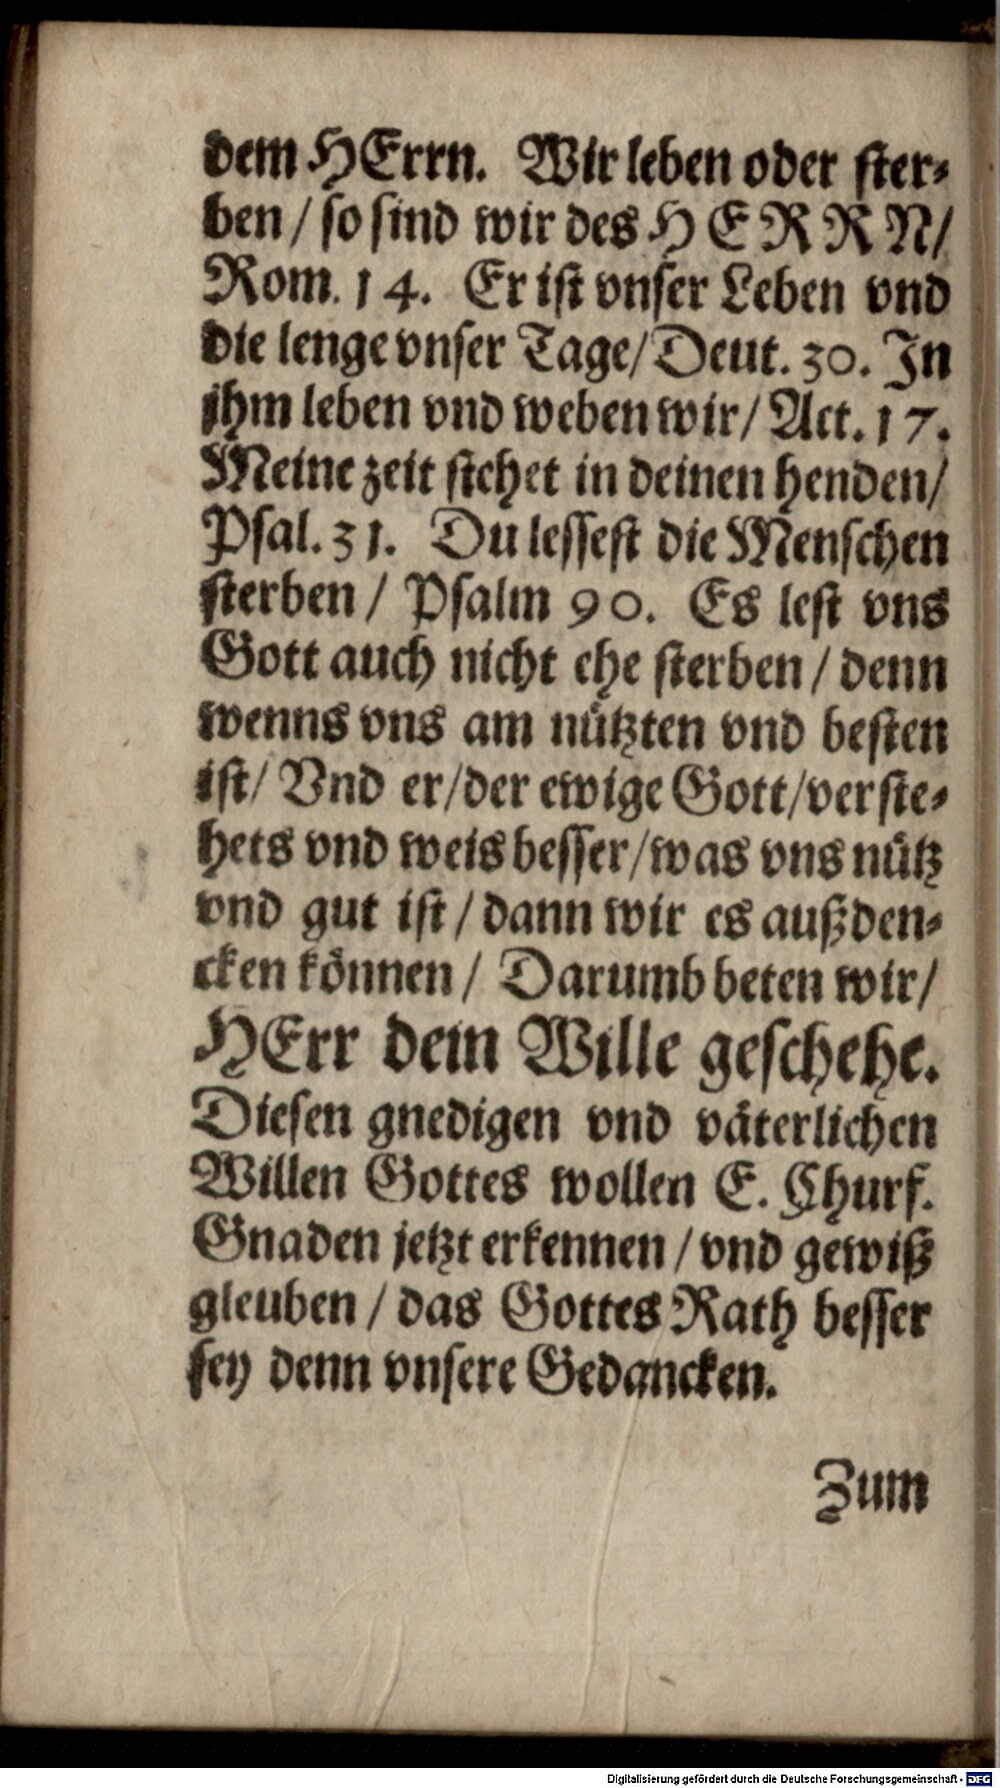 dem HErrn. Wir leben oder ster-
ben / so sind wir des HERRN/
Rom. 14. Er ist vnser Leben vnd
die lenge vnser Tage/ Deut. 30. In
jhm leben vnd weben wir/ Act. 17.
Meine zeit stehet in deinen henden/
Psal. 31. Du lessest die Menschen
sterben / Psalm 90. Es lest vns
Gott auch nicht ehe sterben / denn
wenns vns am nützten vnd besten
ist/ Vnd er/der ewige Gott/verste-
hets vnd weis besser/was vns nütz
vnd gut ist / dann wir es außden-
cken können / Darumb beten wir/
HErr dein Wille geschehe.
Diesen gnedigen vnd väterlichen
Willen Gottes wollen E. Churf.
Gnaden jetzt erkennen / vnd gewiß
gleuben / das Gottes Rath besser
sey denn vnsere Gedancken.
Zum
Digitalisierung gefördert durch die Deutsche Forschungsgemeinschaft - DFG